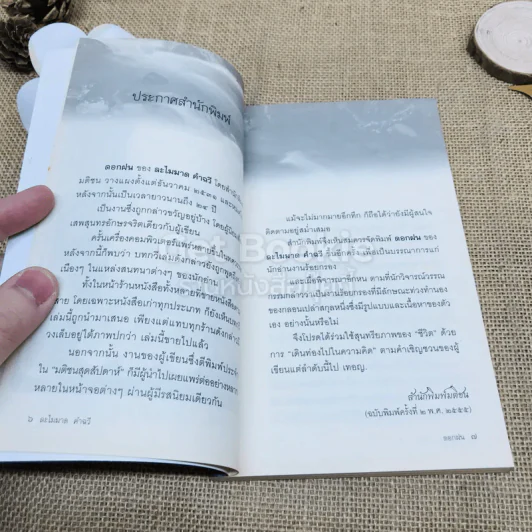 ประกาศสำนักพิมพ์
ดอกฝน ของ ละไมมาด คำฉวี โดยสำนัก
มติชน วางแผงตั้งแต่ธันวาคม ๒๕๓๑
หลังจากนั้นเป็นเวลายาวนานถึง ๒๔ ปี
เป็นงานซึ่งถูกกล่าวขวัญอยู่บ้าง โดยผู้นิยม
เสพสุนทรอักษรจริตเดียวกับผู้เขียน
ครั้นเครื่องคอมพิวเตอร์แพร่หลายขึ้น
หลังจากนี้ก็พบว่า บทกวีเล่มดังกล่าวยังถูกพูดถึง
เนืองๆ ในแหล่งสนทนาต่างๆ ของนัก
ทั้งในหน้าร้านหนังสือทั้งหลายที่ขายหนังสือ
สาย โดยเฉพาะหนังสือเก่าทุกประเภท ก็ยังเห็นบท
เล่มนี้ถูกนำมาเสนอ เพียงแต่แทบทุกร้านดังกล่าว
วงเล็บอยู่ใต้ภาพปกว่า เล่มนี้ขายไปแล้ว
นอกจากนั้น งานของผู้เขียนซึ่งตีพิมพ์ประจำ
ใน "มติชนสุดสัปดาห์" ก็มีผู้นำไปเผยแพร่ต่ออย่างหลาก
หลายในหน้าจอต่างๆ ผ่านผู้มีรสนิยมเดียวกัน
๖ ละไมมาด คำฉวี
แม้จะไม่มากมายอึกทึก ก็ถือได้ว่ายังมีผู้สนใจ
ติดตามอยู่สม่ำเสมอ
สำนักพิมพ์จึงเห็นสมควรจัดพิมพ์ ดอกฝน ของ
ละไมมาด คำฉวี ขึ้นอีกครั้ง เพื่อเป็นบรรณาการแก่
นักอ่านงานร้อยกรอง
และเพื่อพิจารณาอีกหน ตามที่นักวิจารณ์วรรณ
กรรมกล่าวว่า เป็นงานร้อยกรองที่มีลักษณะท่วงทำนอง
ของกลอนเปล่าสกุลหนึ่งซึ่งมีรูปแบบและเนื้อหาของตัว
เอง อย่างนั้นหรือไม่
จึงโปรดได้ร่วมใช้สุนทรียภาพของ "ชีวิต" ด้วย
การ "เดินท่องไปในความคิด" ตามคำเชิญชวนของผู้
เขียนแต่ลำดับนี้ไป เทอญ.
สำนักพิมพ์มติชน
(ฉบับพิมพ์ครั้งที่ ๒ พ.ศ. ๒๕๕๕)
ดอกฝน ๗